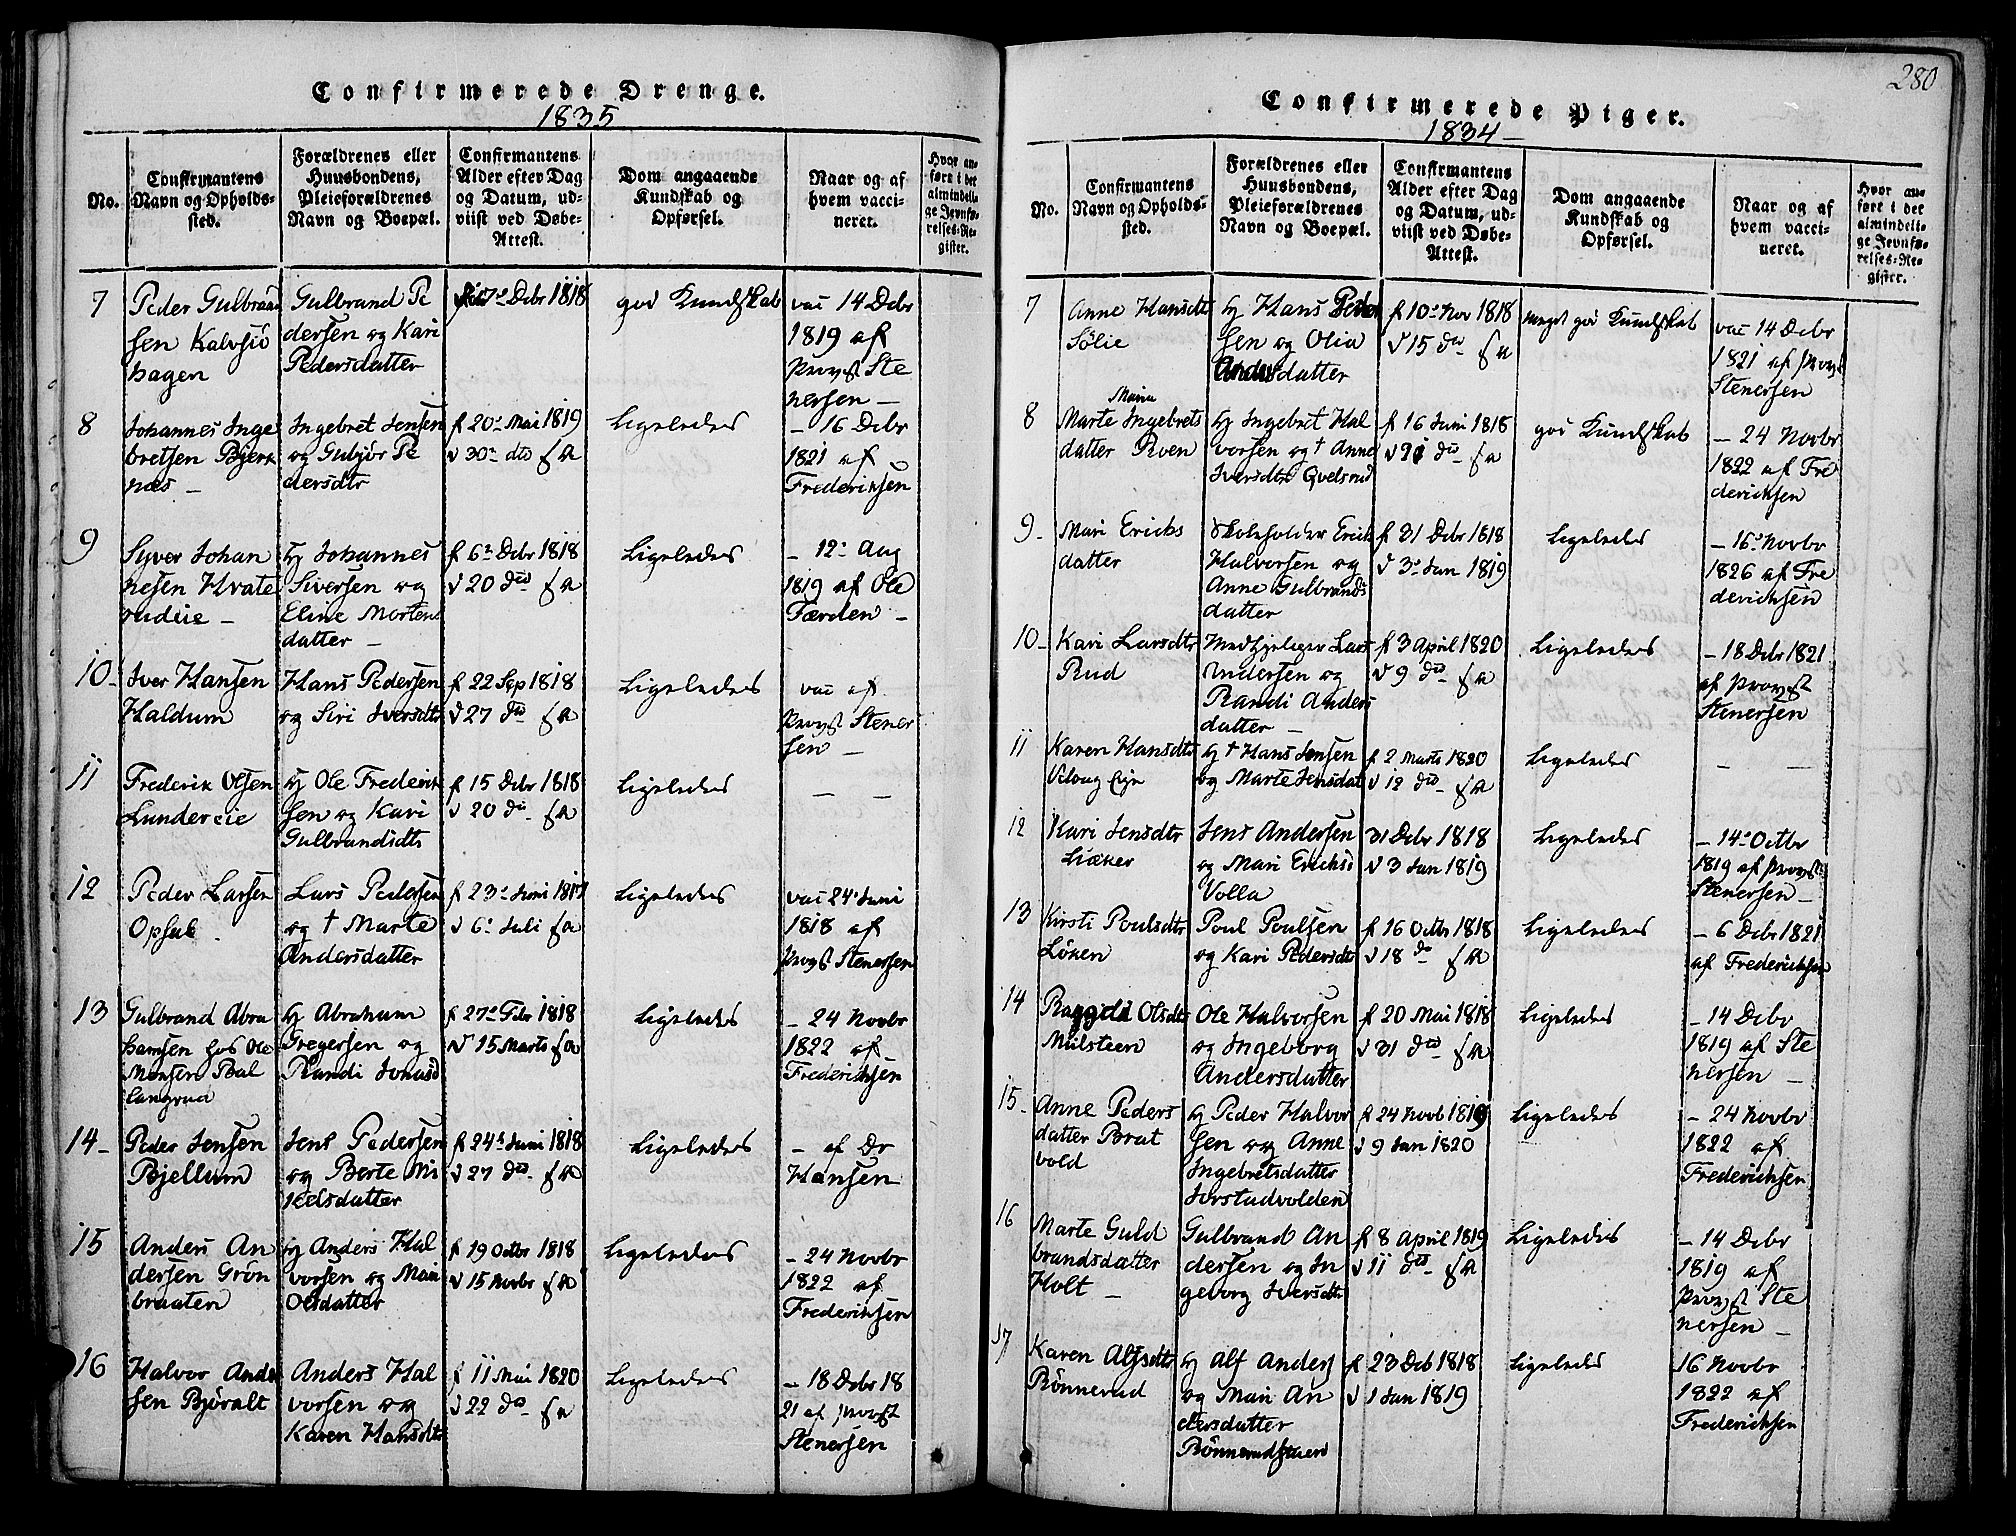 Confirmerede Drenge.
1835
No.
Confirmantens
Navn og Opholds-
sted.
Forældrenes eller
Huusbondens,
Pleieforældrenes
Navn og Boepæl.
Confirmantens
Alder efter Dag
og Datum, ud-
viist ved Døbe-
Attest.
Dom angaaende
Kundskab og
Opførsel.
Naar og af
hvem vacci-
neret.
Hvor an-
ført i det
almindeli-
ge Jevnfø-
relses-Re-
gister.
7
Peder Gulbrand
sen Kalvsiø
hagen
Gulbrand Pe
dersen og Kari
Pedersdatter
Debr 1818
god Kundskab
vac 14 Debr
1819 af
Provst Ste
nersen —
8
Johannes Inge
bretsen Bjerk
næs —
Ingebret Jensen
og Gubjør Pe
dersdtr
f 20 Mai 1819
d 30 dto f a
Ligeledes
— 16 Debr
1821 af
Frederiksen
9
Syver Johan
nesen Hvate
rudeie —
hj Johannes
Siversen og
Eline Mortens
datter —
f 6 Debr 1818
d 20 dto f a
Ligeledes
— 12 Aug
1819 af Ole
Færden —
10 —
Iver Hansen
Haldum
Hans Pedersen
og Siri Iversdtr
f 22 Sep 1818
d 27 dto f a
Ligeledes
vac af
Provst Stener
sen —
11
Frederik Olsen
Lundereie
hj Ole Frederik
sen og Kari
Gulbrandsdtr
f 15 Debr 1818
d 20 dto f a
Ligeledes
— —
12
Peder Larsen
Opsal
Lars Pedersen
og † Marte
Andersdatter
f 23 Juni 1817
d 6 Juli f a
Ligeledes
vac 24 Juni
1818 af
Provst Stenersen
13
Gulbrand Abra
hamsen hos Ole
Monsen Bal
langrud
hj Abraham
Gregersen og
Randi Jonasd
f 27 Febr 1818
d 15 Marts f a
Ligeledes
— 24 Novbr
1822 af
Frederichsen
14 —
Peder Jensen
Bjellum
Jens Pedersen
og Berte Mi
kelsdatter
f 24 Juni 1818
d 27 dto f a
Ligeledes
— af Dr
Hansen
15
Anders An
dersen Grøn
braaten
hj Anders Hal
vorsen og Mari
Olsdatter
f 19 Octbr 1818
d 15 Novbr f a
Ligeledes
— 24 Novbr
1822 af
Frederiksen
16
Halvor Ander
sen Bjøralt
Anders Hal
vorsen og
Karen Hansdtr
f 11 Mai 1820
d 22 do f a
Ligeledes
— 18 Debr 18
21 af Provst
Stenersen
280
Confirmerede Piger.
1834 —
No.
Confirmantens
Navn og Opholds-
sted.
Forældrenes eller
Huusbondens,
Pleieforældrenes
Navn og Boepæl.
Confirmantens
Alder efter Dag
og Datum, ud-
viist ved Døbe-
Attest.
Dom angaaende
Kundskab og
Opførsel.
Naar og af
hvem vacci-
neret.
Hvor an-
ført i det
almindeli-
ge Jevnfø-
relses-Re-
gister.
7
Anne Hansdtr
Sølie
hj Hans Peder
sen og Olia
Andersdatter
f 10 Nov 1818
d 15 dto f a
meget god Kundskab
vac 14 Debr
1821 af Provst
Stenersen
8
Maria
Marte Ingebrets
datter Roen
hj Ingebret Hal
vorsen og † Anne
Iversdtr Qvelsrud
f 16 Juni 1818
d 21 dto f a
god Kundskab
— 24 Novbr
1822 af Fre
derichsen
9 —
Mari Ericks
datter
Skoleholder Erick
Halvorsen og
Anne Gulbrands
datter
f 31 Debr 1818
d 3 Jan 1819
Ligeledes
— 16 Novbr
1826 af Fre
derichsen
10 —
Kari Larsdtr
Rud
Medhjelper Lars
Andersen og
Randi Anders
datter —
f 3 April 1820
d 9 dto f a
Ligeledes
— 18 Debr 1821
af Provst
Stenersen
11
Karen Hansdtr
Viloug Eje
hj † Hans Jensen
og Marte Jensdat
f 2 Marts 1820
d 12 dto f a
Ligeledes
— —
12
Kari Jensdtr
Liæker
Jens Andersen
og Mari Ericksd
Volla
31 Debr 1818
d 3 Jan 1819
Ligeledes
— 14 Octbr
1819 af Provst
Stenersen —
13
Kirsti Poulsdtr
Løken
Poul Poulsen
og Kari Pedersdtr
f 16 Octbr 1818
d 18 do f a
Ligeledes
— 6 Debr 1821
af Frederichsen
14
Ragnild Olsdtr
Milsteen
Ole Halvorsen
og Ingeborg
Andersdatter
f 20 Mai 1818
d 31 dto f a
Ligeledes
— 14 Debr
1819 af Ste
nersen —
15 —
Anne Peders
datter Brat
vold
hj Peder Halvor
sen og Anne
Ingebretsdatter
Jorstadvolden
f 24 Novb 1819
d 9 Jan 1820
Ligeledes
— 24 Novbr
1822 af
Frederichsen
16
Marte Guld
brandsdatter
Holt —
Gulbrand An
dersen og In
geborg Iversdtr
f 8 April 1819
d 11 dto f a
Ligeledes
— 14 Debr
1819 af
Provst Ste
nersen —
17
Karen Alfsdtr
Rønnerud
hj Alf Anders
og Mari An
dersdatter
f 23 Deb 1818
d 1 Jan 1819
Ligeledes
16 Novbr
1822 af
Frederichsen